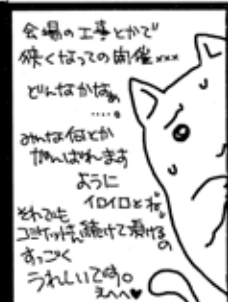 会場の工事とかで
狭くなっての開催xxx
どんなかなぁ
....。
みんな何とか
がんばれます
ように
イロイロとね。
それでも
コミケットさん続けて頂けるの
すっごく
うれしいです。
えへへ♥